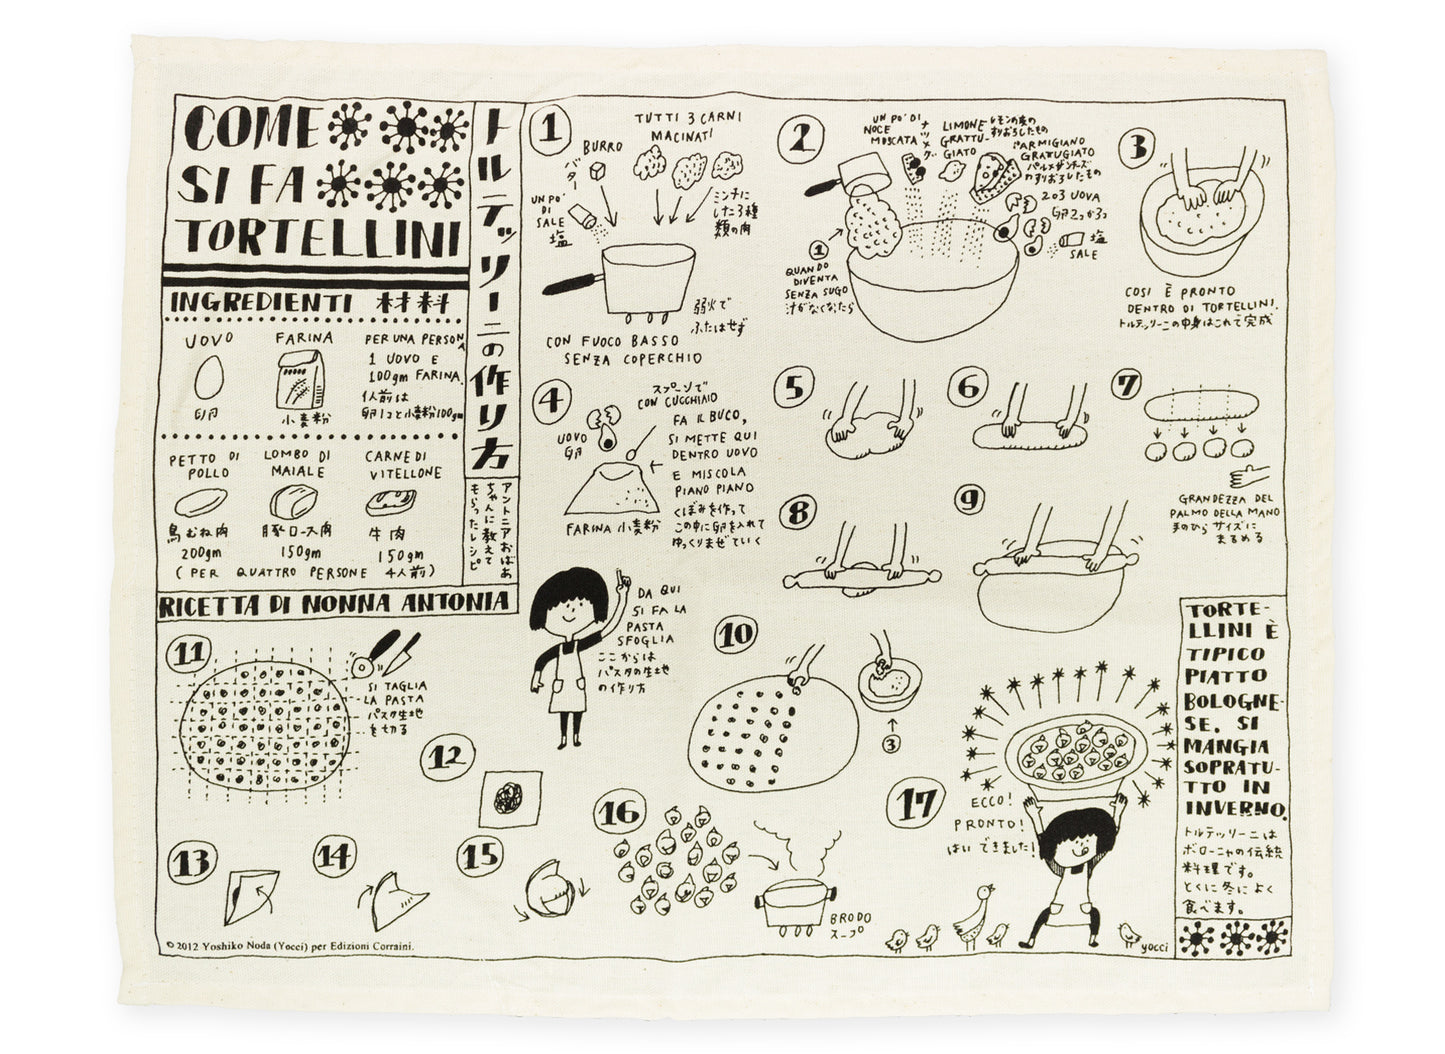 COME
SI FA
TORTELLINI
トルテッリーニの作り方
INGREDIENTI 材料
UOVO
卵
FARINA
小麦粉
PER UNA PERSONA
1 UOVO E
100gm FARINA.
1人前は
卵1コと小麦粉100gm
PETTO DI
POLLO
鳥むね肉
200gm
LOMBO DI
MAIALE
豚ロース肉
150gm
CARNE DI
VITELLONE
牛肉
150gm
(PER QUATTRO PERSONE 4人前)
アントニアおばあ
ちゃんに教えて
もらったレシピ
RICETTA DI NONNA ANTONIA
1
TUTTI 3 CARNI
MACINATI
BURRO
バター
UN PO'
DI
SALE
塩
ミンチに
した3種
類の肉
弱火で
ふたはせず
CON FUOCO BASSO
SENZA COPERCHIO
2
UN PO' DI
NOCE
MOSCATA
ナツメグ
LIMONE
GRATTU-
GIATO
レモンの皮の
すりおろしたもの
PARMIGIANO
GRATUGIATO
パルメザンチーズ
のすりおろしたもの
2 o 3 UOVA
卵2つか3つ
塩
SALE
1
QUANDO
DIVENTA
SENZA SUGO
汁がなくなったら
3
COSI È PRONTO
DENTRO DI TORTELLINI.
トルテッリーニの中身はこれで完成
4
スプーンで
CON CUCCHIAIO
UOVO
卵
FA IL BUCO,
SI METTE QUI
DENTRO UOVO
E MISCOLA
PIANO PIANO
くぼみを作って
この中に卵を入れて
ゆっくりまぜていく
FARINA 小麦粉
5
6
7
GRANDEZZA DEL
PALMO DELLA MANO
手のひらサイズに
まるめる
8
9
DA QUI
SI FA LA
PASTA
SFOGLIA
ここからは
パスタの生地
の作り方
10
3
11
SI TAGLIA
LA PASTA
パスタ生地
を切る
12
13
14
15
16
BRODO
スープ
17
ECCO!
PRONTO!
はいできました!
TORTE-
LLINI È
TIPICO
PIATTO
BOLOGNE-
SE. SI
MANGIA
SOPRATU-
TTO IN
INVERNO.
トルテッリーニは
ボローニャの伝統
料理です。
とくに冬によく
食べます。
yocci
© 2012 Yoshiko Noda (Yocci) per Edizioni Corraini.